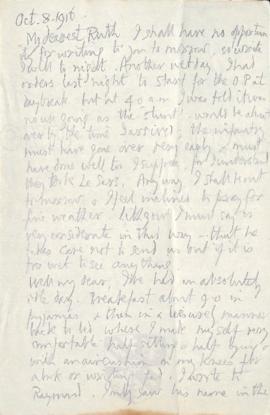 Oct. 8. 1916
My dearest Ruth I shall have no opportun
ity for writing to you to morrow, so words
I will to night. Another wet day. I had
orders last night to start for the O.P. at
daybreak but at 4 a.m. I was told it was
no use going as the "stunt" would be about
over by the time I arrived; the infantry
must have gone over very early & must
have done well too I suppose, for I understand
they took Le Sars. Anyway I shall go out
to morrow, & feel inclined to pray for
fine weather. I must say is
very considerate in this way – that he
takes care not to send us out if it is
too wet to see anything.
Well my dear, I've had an absolutely
idle day. Breakfast about 9.0 in
pyjamas & then in a leisurely manner
back to bed where I made myself very
comfortable half sitting & half lying
with an air cushion & on my knees for
a book or writing pad. I wrote to
Raymond. I only saw his name in the